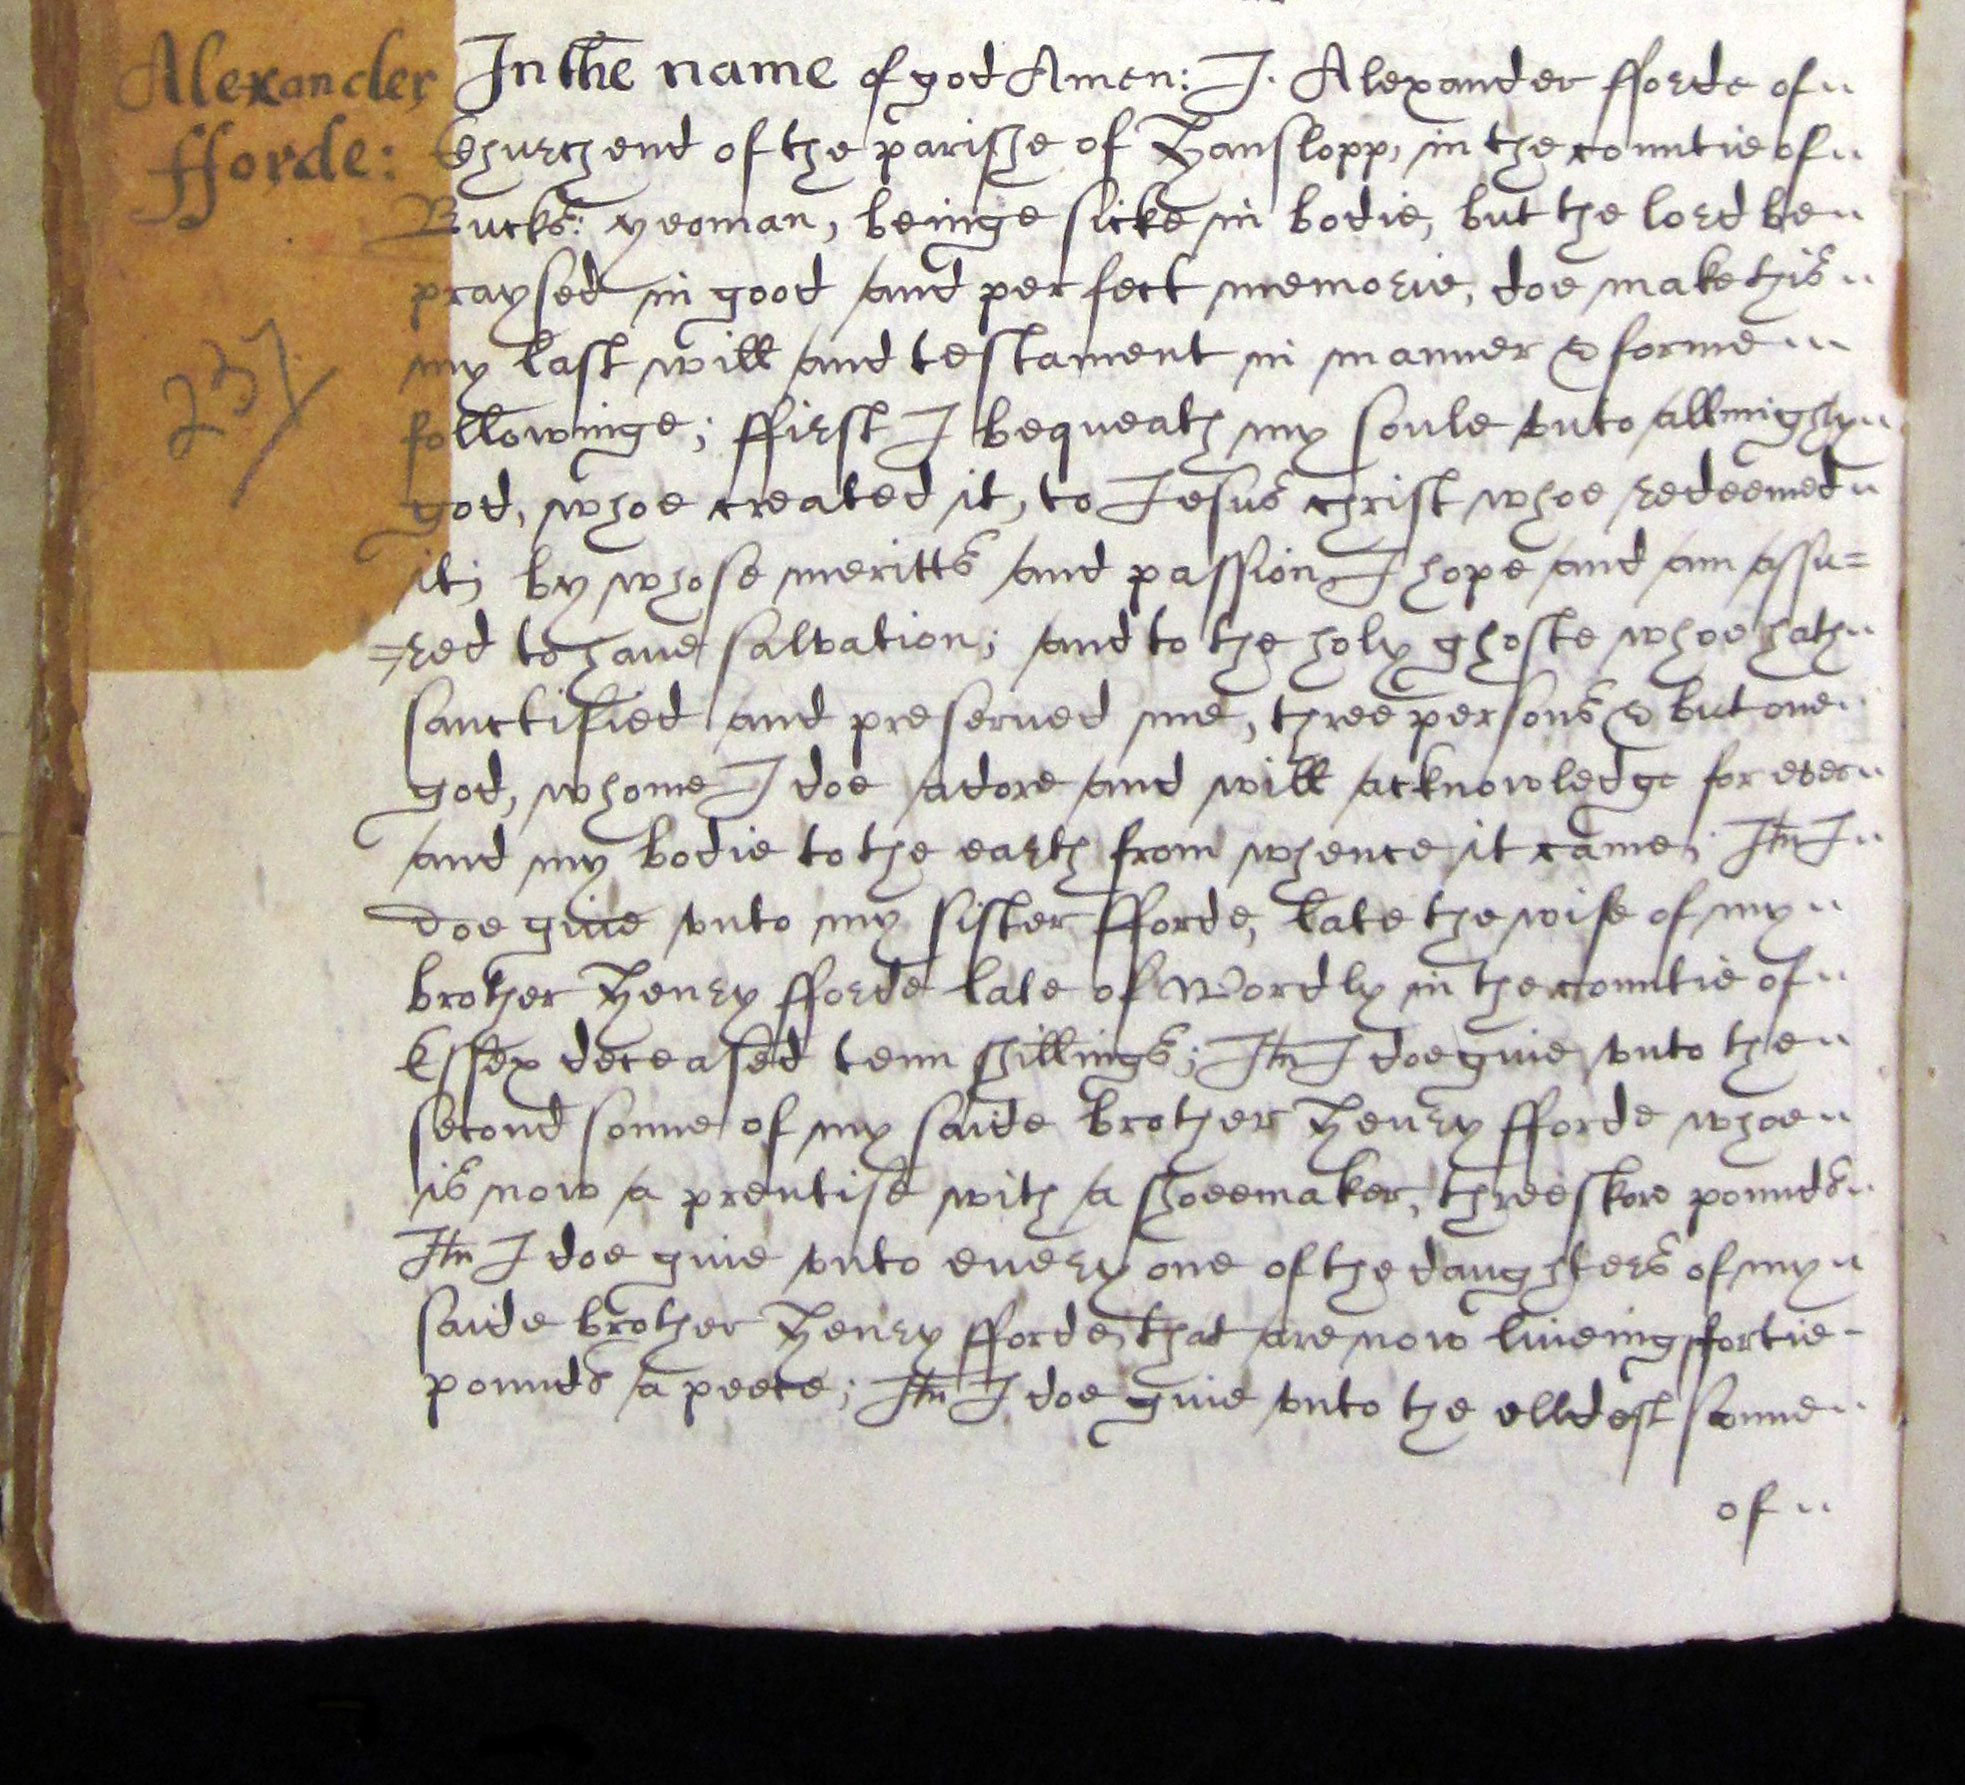 Alexander
fforde:
237
In the name of god Amen: I. Alexander fforde of
Churchend of the parishe of Hanslopp, in the countie of
Bucks: yeoman, beinge sicke in bodie, but the lord be
praysed in good and perfect memorie, doe make this
my last will and testament in manner & forme
followinge; ffirst I bequeath my soule vnto allmighty
god, whoe created it, to Iesus christ whoe redeemed
it; by whose meritts and passion I hope and am assu=
=red to haue salvation; and to the holy ghoste whoe hath
sanctified and preserued me, three persons & but one
god, whome I doe adore and will acknowledge for ever
and my bodie to the earth from whence it came; Itm I
doe giue vnto my sister fforde, late the wife of my
brother Henry fforde late of Wordly in the countie of
Essex deceased tenn shillings; Itm I doe giue vnto the
second sonne of my saide brother Henry fforde whoe
is now a prentise with a shoeemaker, threeskore pounds
Itm I doe giue vnto euery one of the daughters of my
saide brother Henry fforde, that are now liueing, fortie
pounds a peece; Itm I doe giue vnto the elldest sonne
of